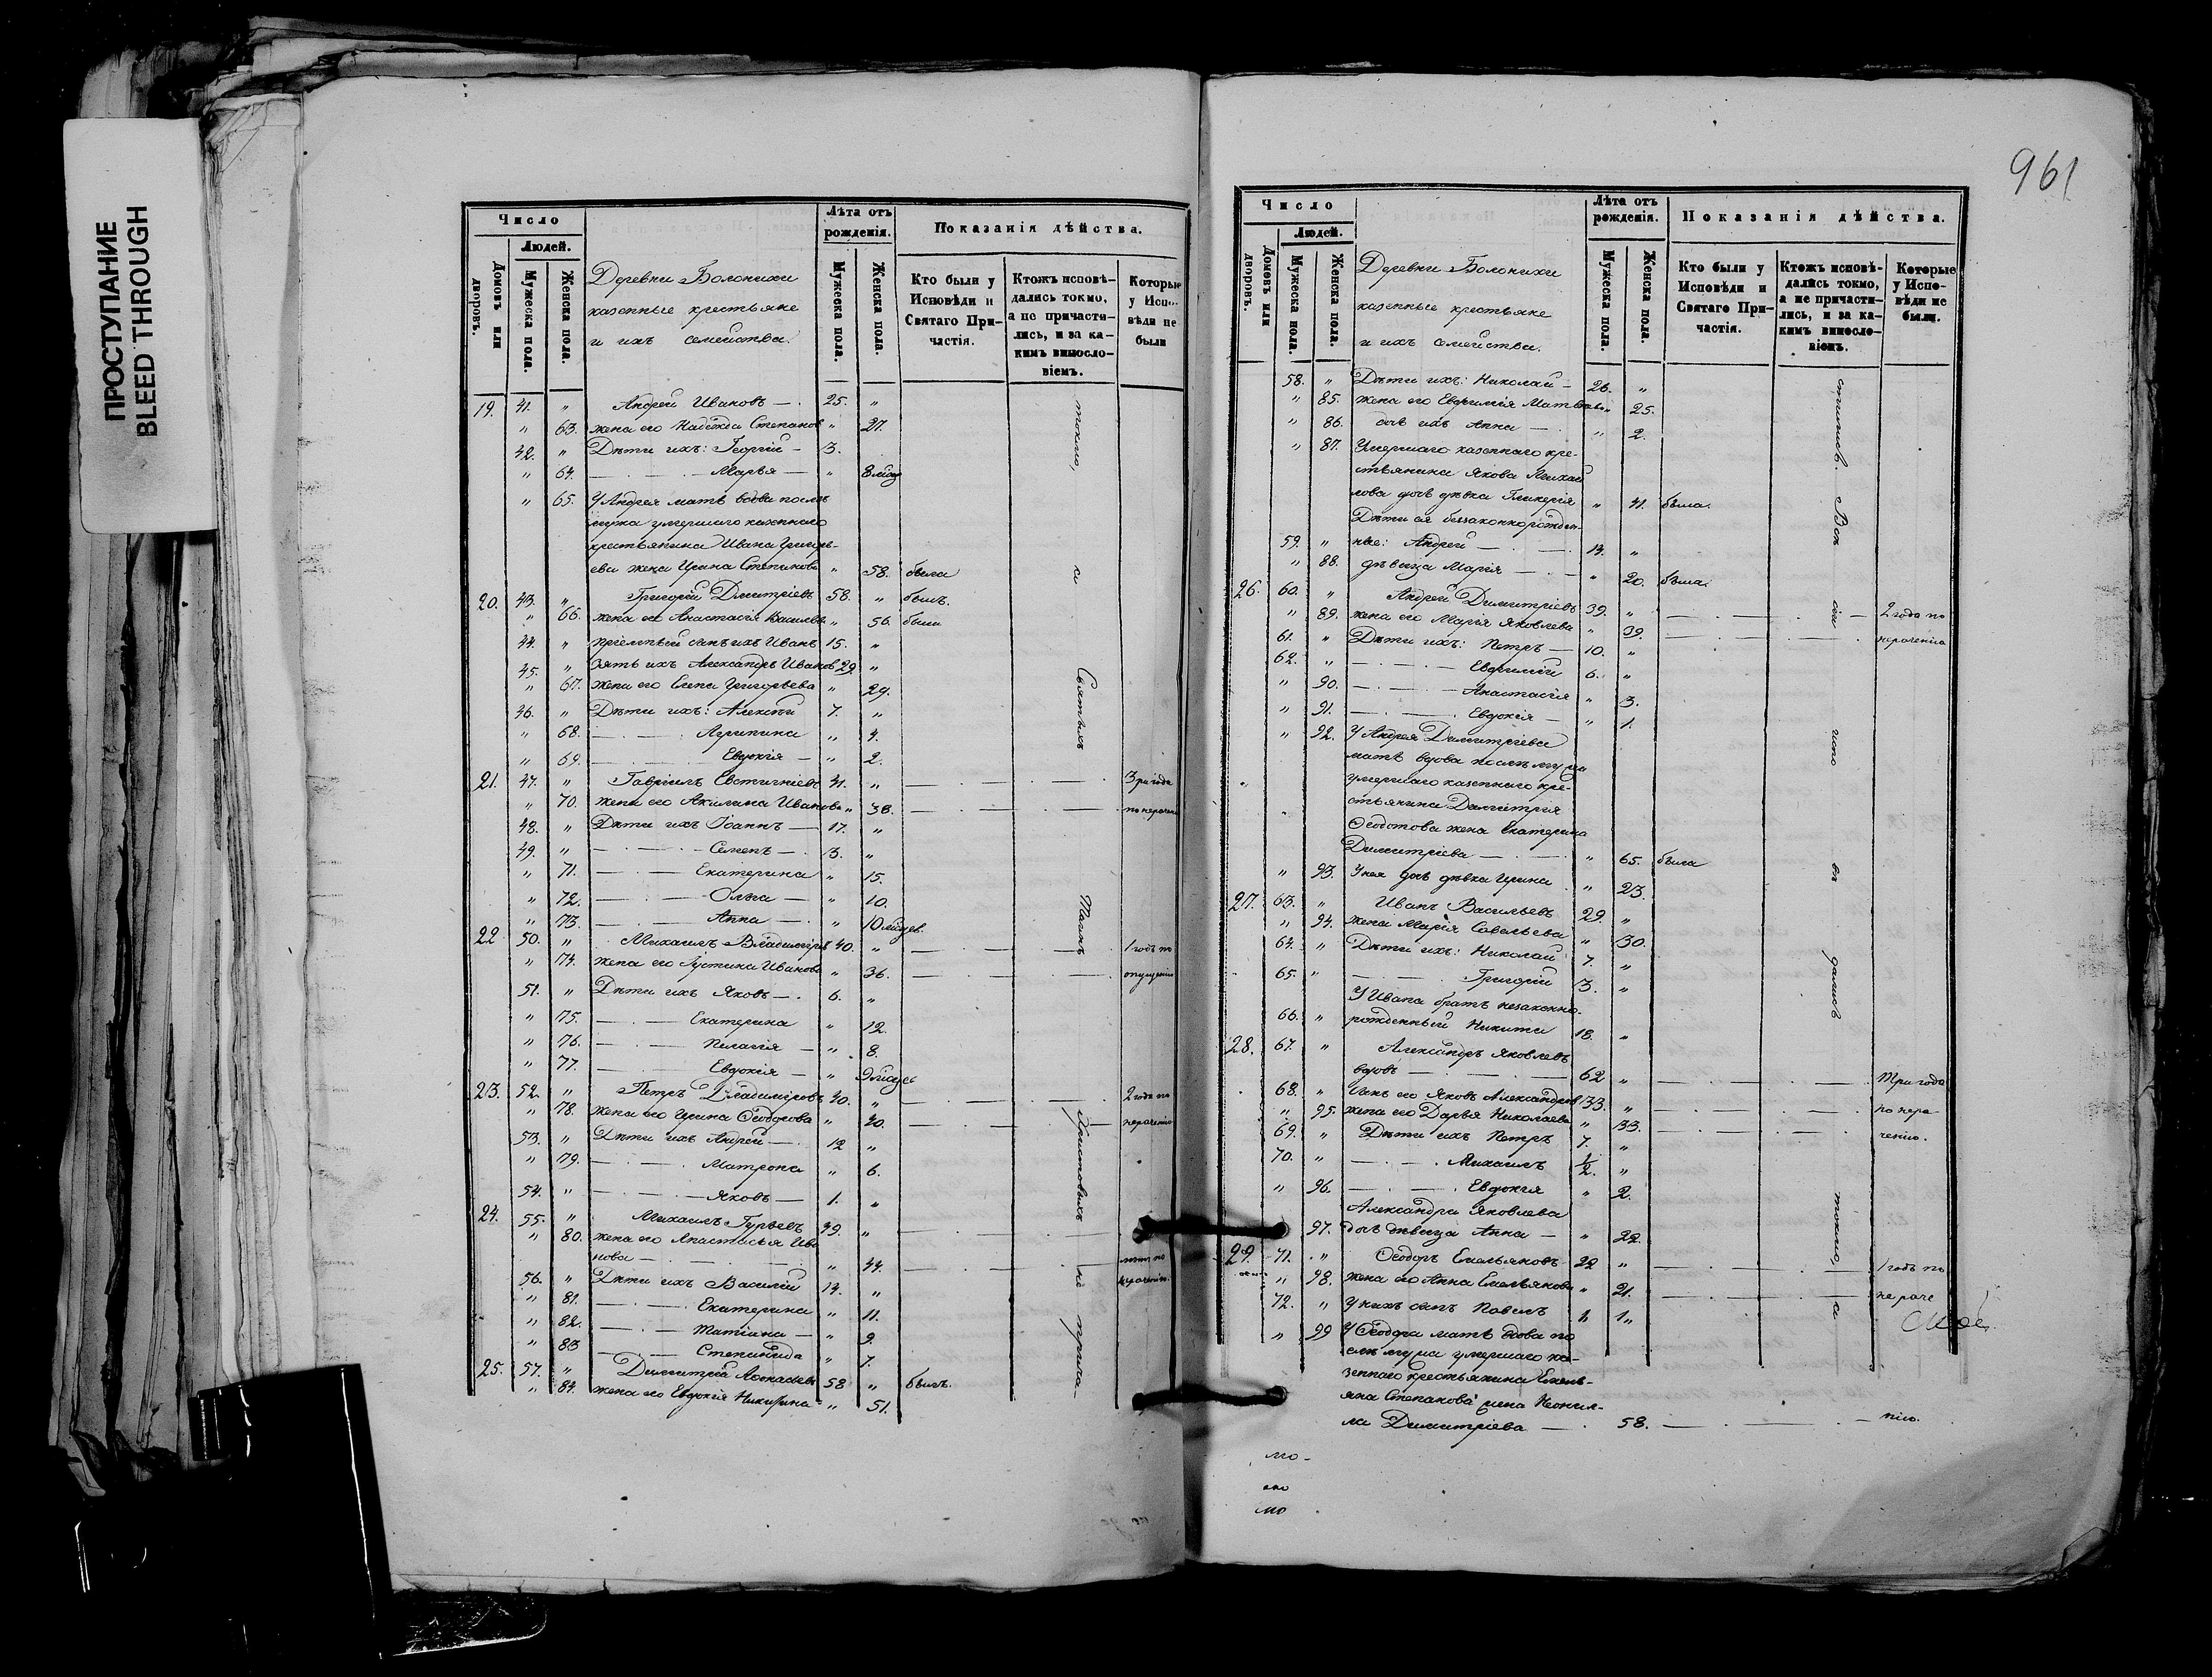 ПРОСТУПАНИЕ
BLEED THROUGH
961
Число
Людей.
Домовъ или дворовъ.
Мужеска пола.
Женска пола.
Деревни Болонихи
казенные крестьяне
и ихъ семейства.
Лѣта отъ рожденія.
Мужеска пола.
Женска пола.
Показанія дѣйства.
Кто были у Исповѣди и Святаго Причастія.
Ктожъ исповѣдались токмо, а не причастились, и за какимъ винословіемъ.
Которые у Испо- вѣди не были
19. 41. " Андрей Ивановъ — 25. "
" 63. жена его Надежда Степанов " 27.
42. " Дѣти ихъ: Георгій — 3.
" 64. — Марья — " 8 мѣся
" 65. У Андрея мать вдова послѣ
мужа умершаго казеннаго
крестьянина Ивана Григорь-
ева жена Ирина Степанова " 58. была
20. 43. " Григорій Димитріевъ 58. " былъ.
" 66. жена его Анастасія Василье " 56. была
44. " пріемный сынъ ихъ Иванъ 15. "
45. " Зять ихъ Александръ Иванов 29 "
" 67. жена его Елена Григорьева " 29.
46. " Дѣти ихъ: Алексѣй 7. "
" 68. — Агрипина " 4.
" 69. — Евдокія — " 2.
21. 47. " Гавріилъ Евстигнѣевъ 41. " — Три года
" 70. жена его Акилина Иванова " 38. — по нерачен
48. " Дѣти ихъ Іоаннъ — 17. "
49. " — Семенъ — 3. "
" 71. — Екатерина " 15.
" 72. — Ольга — " 10.
" 73. — Анна — " 10 мѣсяцев.
22 50. " Михаилъ Владиміровъ 40. " — 1 годъ по
" 74. жена его Іустина Иванова " 36. — опущенію
51. " Дѣти ихъ Яковъ — 6. "
" 75. — Екатерина " 12.
" 76. — Пелагія — " 8.
" 77. — Евдокія — " 9 мѣсяцъ
23. 52. " Петръ Владиміровъ 40. " — 2 года по
" 78. жена его Ирина Ѳеодорова " 40. — нераченію
53. " Дѣти ихъ Андрей — 12 "
" 79. — Матрона " 6.
54. " — Яковъ — 1. "
24. 55. " Михаилъ Гурьевъ 39. " —
" 80. жена его Анастасья Ива
нова — " 44. — по нераченію.
56. " Дѣти ихъ Василій 14. "
" 81. — Екатерина " 11.
" 82. — Татіана — " 9
" 83 — Степанида " 7.
25. 57. " Димитрій Аѳонасьевъ 58 " былъ.
" 84. жена его Евдокія Никитина " 51.
токмо, а Святыхъ Таинъ Христовыхъ не прича-
Число
Людей.
Домовъ или дворовъ.
Мужеска пола.
Женска пола.
Деревни Болонихи
казенные крестьяне
и ихъ семейства.
Лѣта отъ рожденія.
Мужеска пола.
Женска пола.
Показанія дѣйства.
Кто были у Исповѣди и Святаго Причастія.
Ктожъ исповѣдались токмо, а не причастились, и за какимъ винословіемъ.
Которые у Исповѣди не были.
58. " Дѣти ихъ: Николай — 26. "
" 85. жена его Евфимія Матвѣева " 25.
" 86. дочь ихъ Анна — " 2.
" 87. Умершаго казеннаго кре-
стьянина Якова Михай
лова дочь дѣвка Гликерія " 41. была.
Дѣти ея беззаконнорожден-
59. " ные: Андрей — 14. "
" 88. дѣвица Марія — " 20. была.
26. 60. " Андрей Димитріевъ 39. " — 2 года по
" 89. жена его Марія Яковлева " 39. — нераченію
61. " Дѣти ихъ: Петръ — 10. "
62. " — Евфимій 6. "
" 90. — Анастасія " 3.
" 91. — Евдокія — " 1.
" 92. У Андрея Димитріева
мать вдова послѣ мужа
умершаго казеннаго кре-
стьянина Димитрія
Ѳедотова жена Екатерина
Димитріева — " 65. была
" 93. У нея дочь дѣвка Ирина " 23.
27. 63. " Иванъ Васильевъ 29. "
" 94. жена Марія Савельева " 30.
64. " Дѣти ихъ: Николай 7. "
65. " — Григорій 3. "
У Ивана братъ незаконно-
66. " рожденный Никита 18. "
28. 67. " Александръ Яковлевъ
вдовъ — 62 " — Три года
68. " Сынъ его Яковъ Александров 33. " — по нера-
" 95. жена его Дарья Николаева " 33. — ченію.
69. " Дѣти ихъ Петръ 7. "
70. " — Михаилъ 1/2. "
" 96. — Евдокія " 2.
Александра Яковлева
97. дочь дѣвица Анна — " 22.
29. 71. " Ѳеодоръ Емельяновъ 22 " — 1 годъ по
" 98. жена его Анна Емельянова " 21. — нераче
72. " У нихъ сынъ Павелъ 1 1"
" 99 У Ѳеодора мать вдова по
слѣ мужа умершаго ка-
зеннаго крестьянина Емель-
яна Степанова жена Неонил-
ла Димитріева — 58. — нію.
стились. Вси сіи что въ домахъ токмо, а